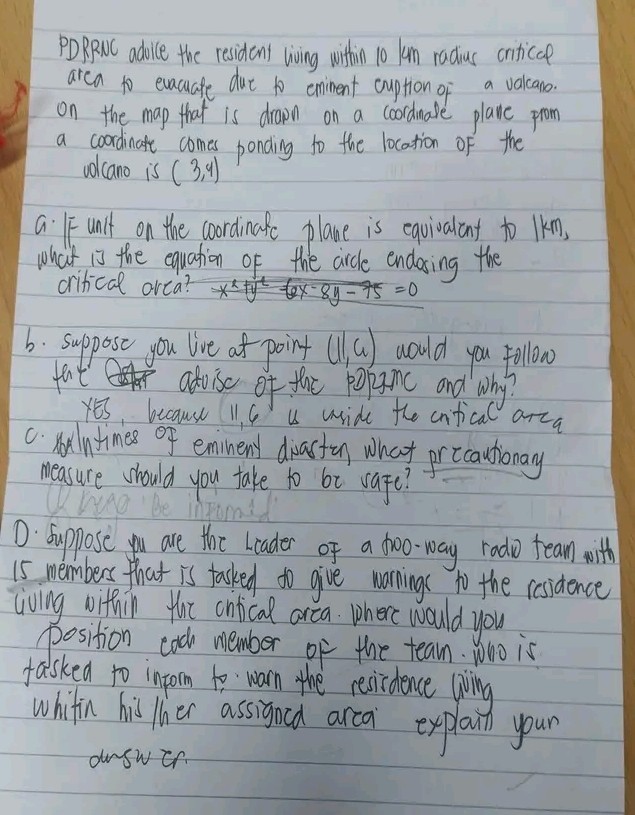 PDRRNC advice the resident living within 10 km radius critical
area to evacuate due to eminent eruption of a valcano.
on the map that is drapn on a coordinate plane prom
a coordinate comes ponding to the location of the
volcano is (3,4)
a. If unit on the coordinate plane is equivalent to 1km,
what is the equation of the circle endosing the
critical area? x²+y² 6x-8y-75 =0
b. suppose you live at point (11,6) would you follow
the advise of the PDRRMC and why?
YES, because 11,6 is inside the critical area
c. In times of eminent disaster, what precautionary
measure should you take to be safe?
be informed
D. Suppose you are the Leader of a two-way radio team with
15 members that is tasked to give warnings to the residence
living within the critical area. where would you
position each member of the team. who is
tasked to inform to warn the resirdence living
whitin his/her assigned area explain your
answer.